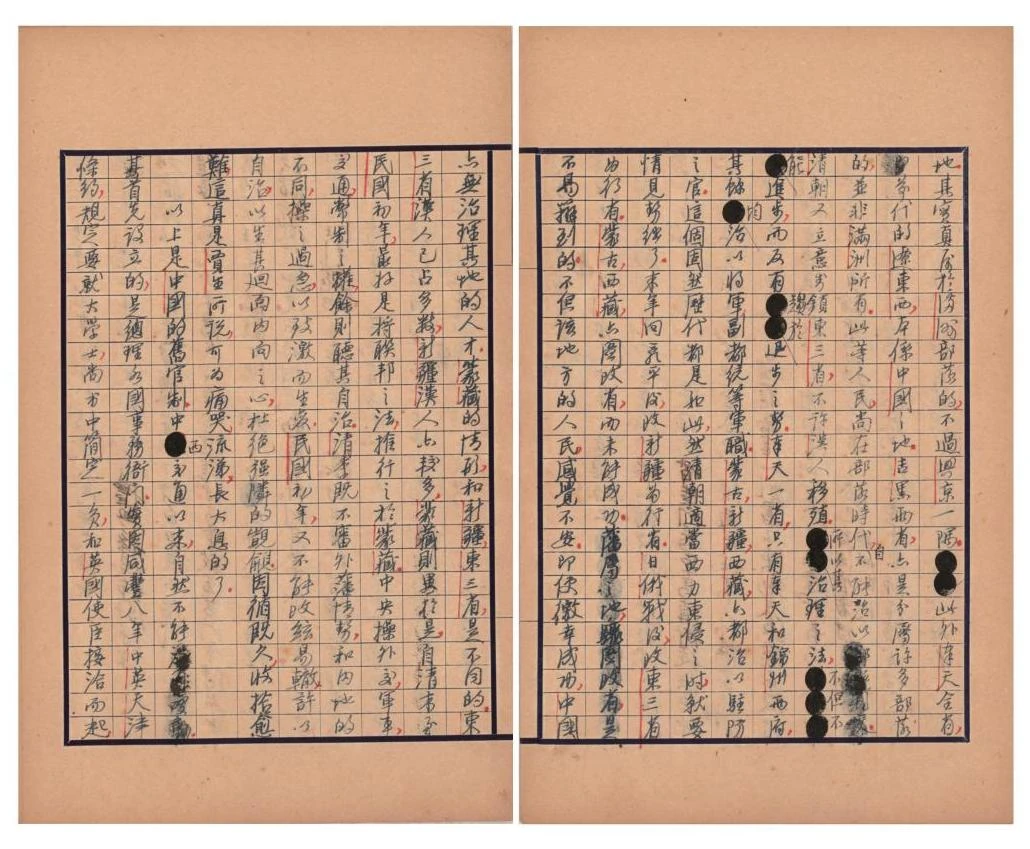 地。其實真屬於滿洲部落的,不過興京一隅。此外奉天全省,
即前代的遼東西,本係中國之地。吉黑兩省,亦是分屬許多部落
的,並非滿洲所有。此等人民,尚在部落時代,自不能治以
清朝又立意封鎖東三省,不許漢人移殖,所以其治理之法,不但不
能進步,而反有趨於退步之勢。奉天一省,只有奉天和錦州兩府,
其餘均治以將軍副都統等軍職。蒙古新疆西藏,亦都治以駐防
之官。這個固然歷代都是如此,然清朝適當西力東侵之時,就要
情見勢絀了。末年回亂平後,改新疆為行省,日俄戰後,改東三省
為行省。蒙古西藏,亦圖改省而未能成功。藩屬之地,驟圖改省,是
不易辦到的。不但該地方的人民,感覺不安,即使徼幸成功,中國
亦無治理其地的人才。蒙藏的情形,和新疆東三省,是不同的。東
三省漢人已占多數,新疆漢人亦較多,蒙藏則異於是。自清末至
民國初年,最好是將聯邦之法,推行之於蒙藏,中央操外交軍事,
交通幣制之權,餘則聽其自治。清季既不審外藩情勢,和內地的
不同,操之過急,以致激而生變。民國初年,又不能改絃易轍,許以
自治,以生其迴向內向之心,杜絕強鄰的覬覦,因循既久,收拾愈
難,這真是賈生所說,可為痛哭流涕長太息的了。
以上是中國的舊官制。中西交通以來,自然不能
其首先設立的,是總理各國事務衙門,咸豐八年,中英天津
條約,規定要就大學士尚書中簡定一員,和英國使臣接洽而起